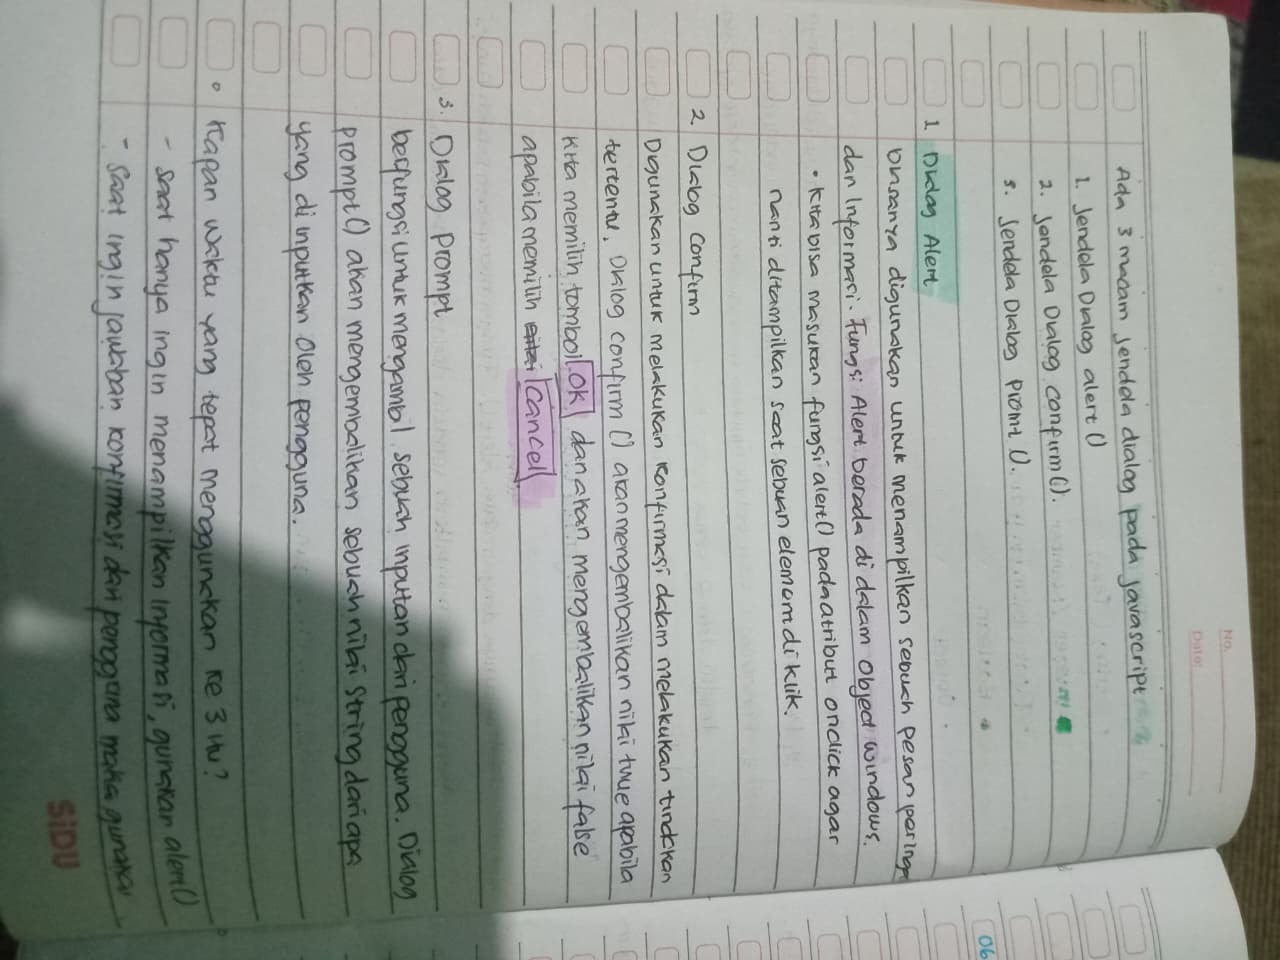 No.
Date:
Ada 3 macam jendela dialog pada javascript
1. Jendela Dialog alert ()
2. Jendela Dialog confirm ().
3. Jendela Dialog promt ().
1. Dialog Alert
biasanya digunakan untuk menampilkan sebuah pesan peringa
dan Informasi. Fungsi Alert berada di dalam object windows.
• kita bisa masukan fungsi alert() pada atribut onclick agar
nanti ditampilkan saat sebuah elemen di klik.
2. Dialog Confirm
Digunakan untuk melakukan konfirmasi dalam melakukan tindakan
tertentu. Dialog confirm () akan mengembalikan nilai true apabila
kita memilih tombol OK dan akan mengembalikan nilai false
apabila memilih Cancel.
3. Dialog Prompt
berfungsi untuk mengambil sebuah inputan dari pengguna. Dialog
prompt () akan mengembalikan sebuah nilai string dari apa
yang di inputkan oleh pengguna.
° Kapan waktu yang tepat menggunakan ke 3 itu?
- Saat hanya ingin menampilkan informasi, gunakan alert()
- Saat ingin jawaban konfirmasi dari pengguna maka gunakan
SIDU
06